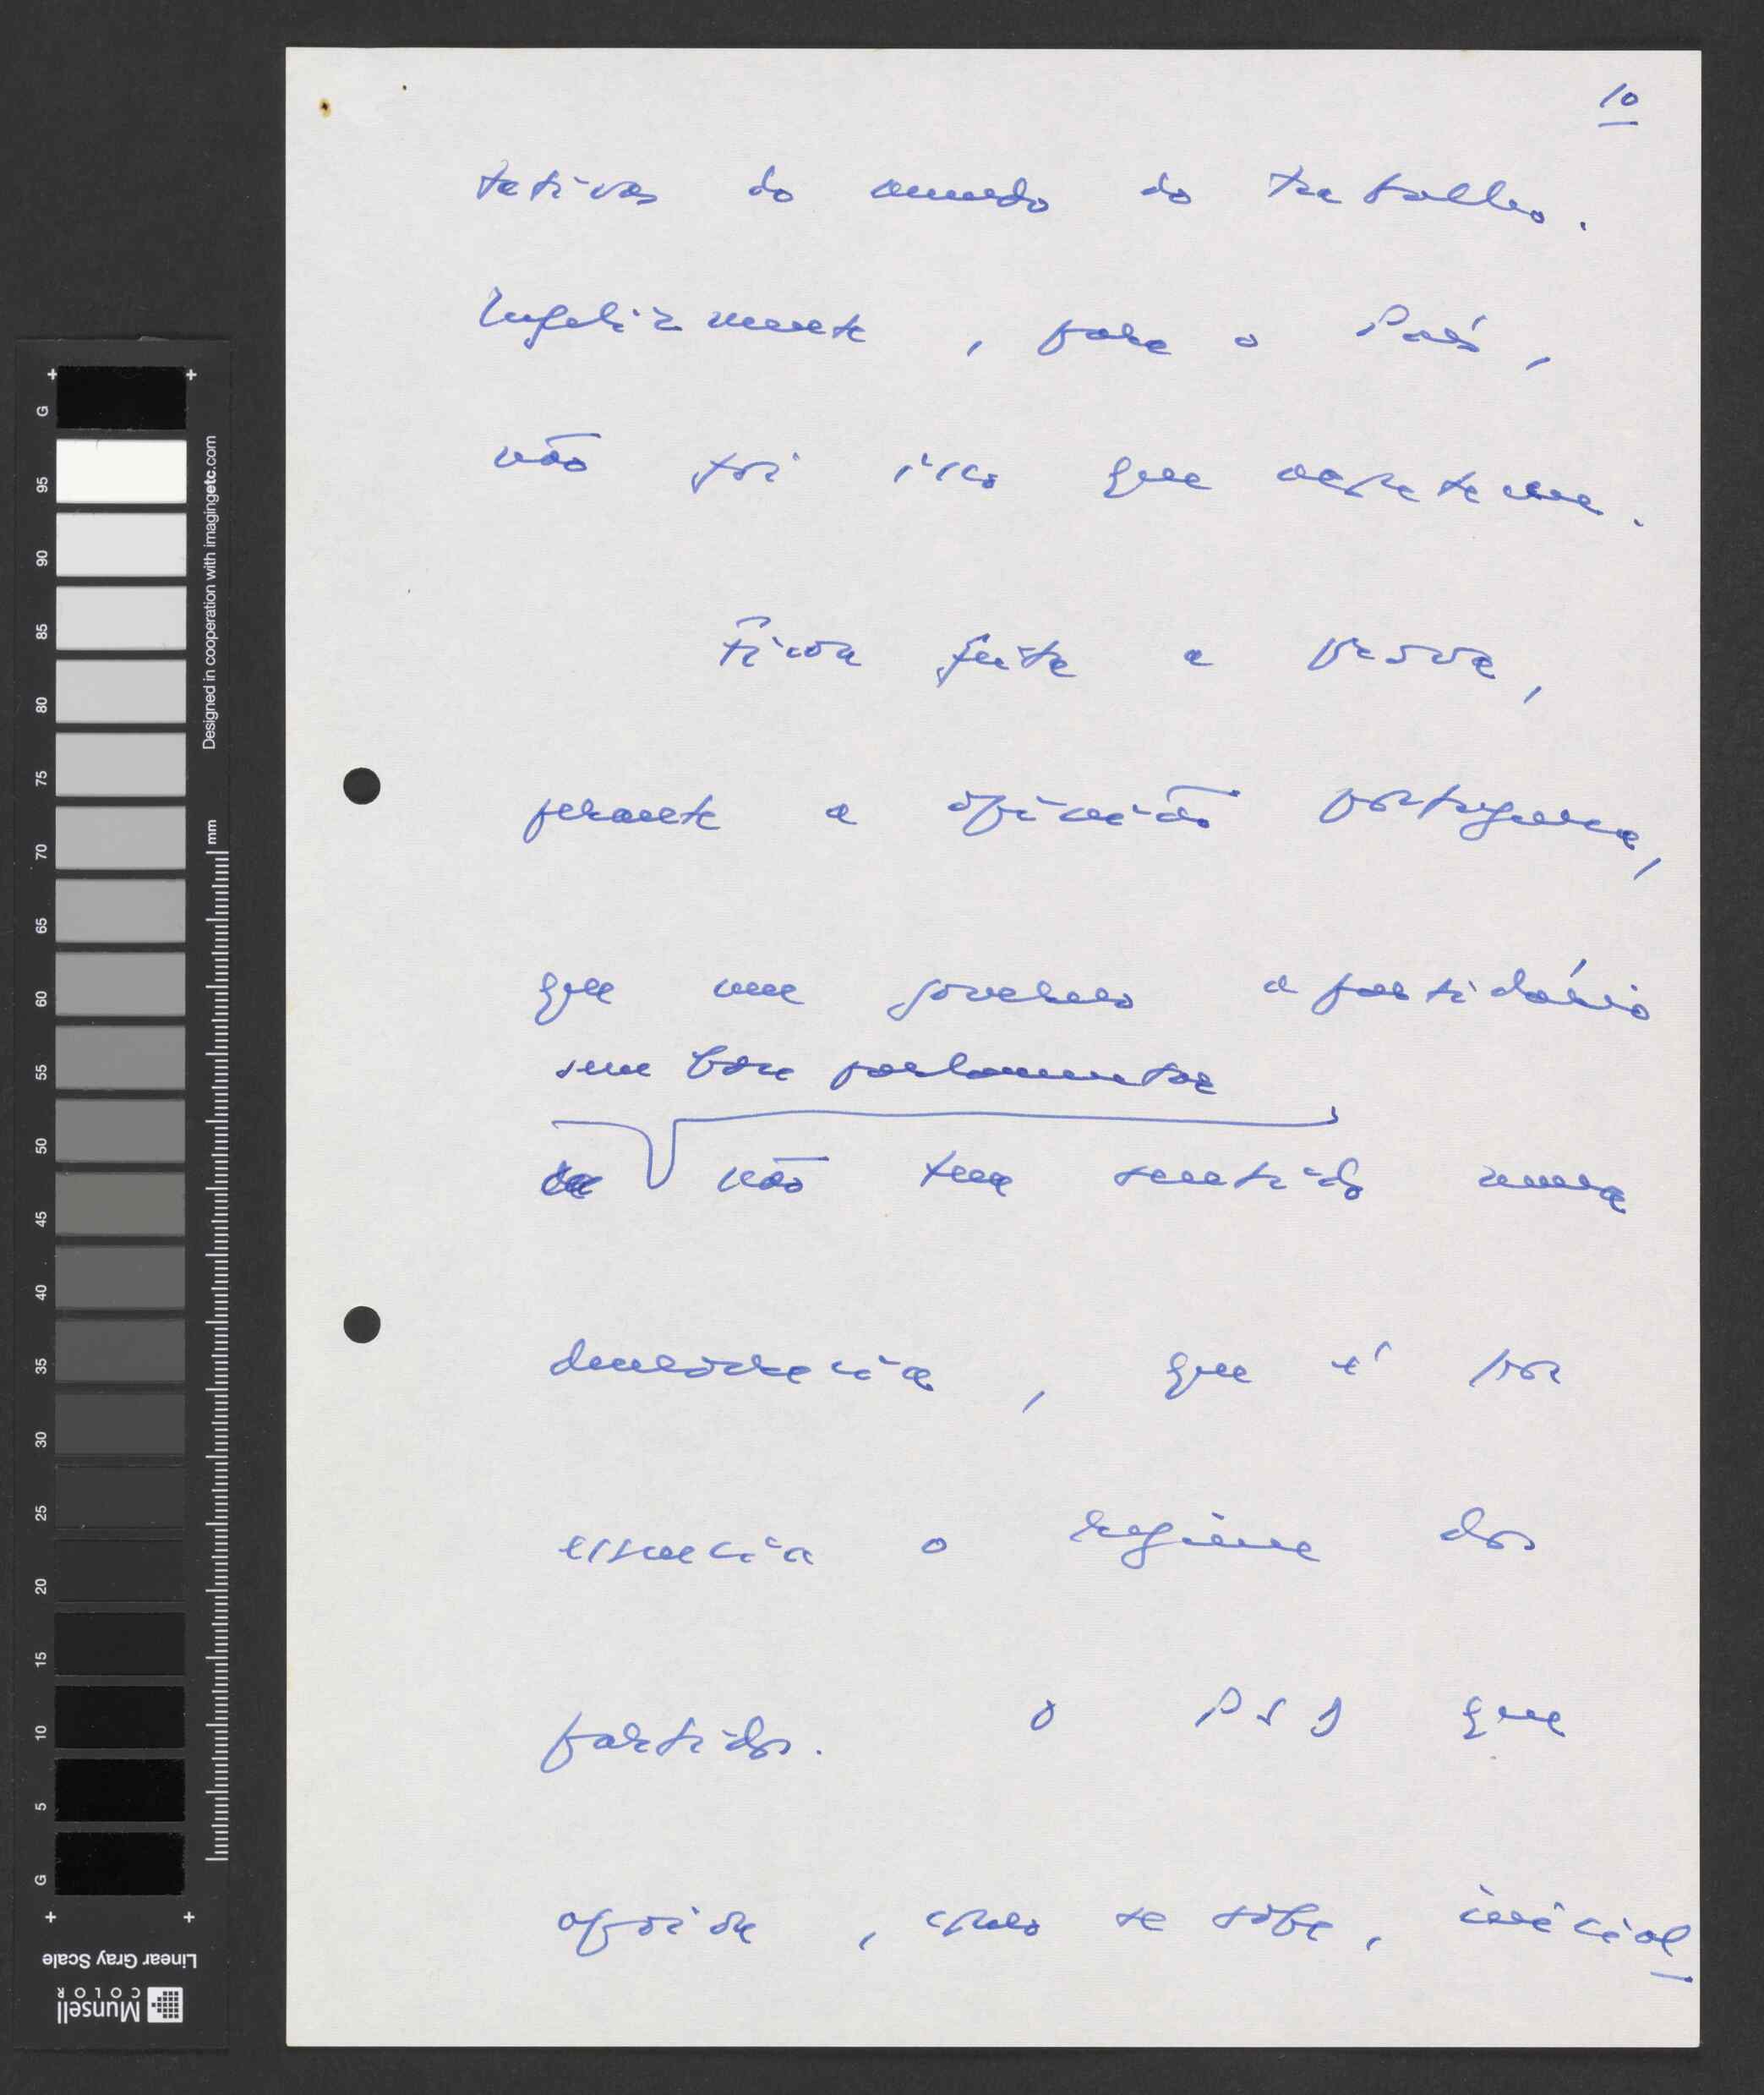 10
tativas do mundo do trabalho.
Infelizmente, para o País,
não foi isso que aconteceu.
Ficou feita a prova,
perante a opinião portuguesa,
que um governo apartidário
sem base parlamentar
não tem sentido numa
democracia, que é por
essência o regime dos
partidos. O PSD que
apoiou, como se sabe, inicial
G
95
90
85
80
75
70
65
60
55
50
45
40
35
30
25
20
15
10
5
G
Designed in cooperation with imagingetc.com
mm
Linear Gray Scale
Munsell
COLOR